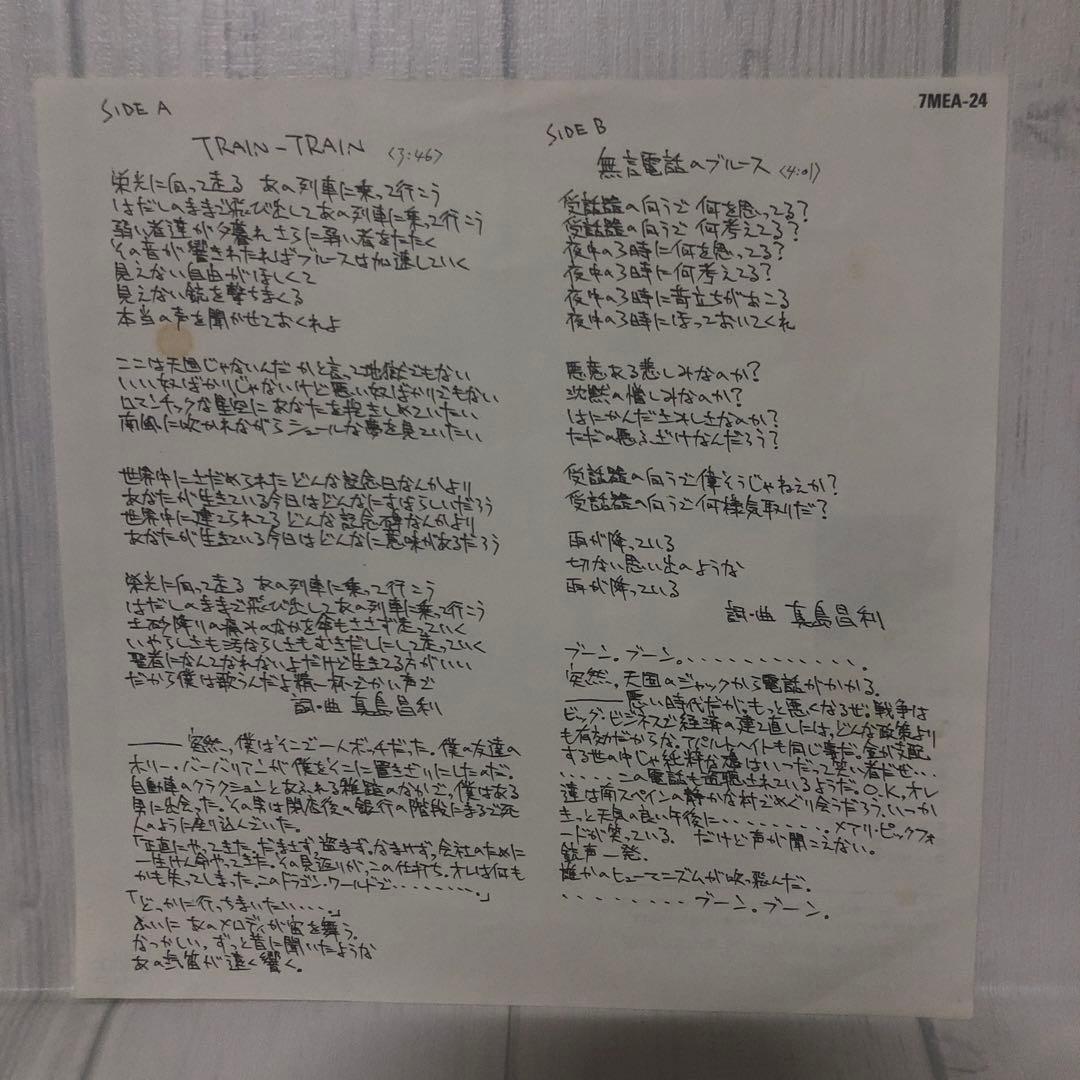 7MEA-24
SIDE A
TRAIN-TRAIN (3:46)
栄光に向って走る あの列車に乗って行こう
はだしのままで飛び出して あの列車に乗って行こう
弱い者達が夕暮れ さらに弱い者をたたく
その音が響きわたれば ブルースは加速していく
見えない自由がほしくて
見えない銃を撃ちまくる
本当の声を聞かせておくれよ
ここは天国じゃないんだ かと言って地獄でもない
いい奴ばかりじゃないけど 悪い奴ばかりでもない
ロマンチックな星空に あなたを抱きしめていたい
南風に吹かれながら シュールな夢を見ていたい
世界中にさだめられた どんな記念日なんかより
あなたが生きている今日は どんなにすばらしいだろう
世界中に建てられてる どんな記念碑なんかより
あなたが生きている今日は どんなに意味があるだろう
栄光に向って走る あの列車に乗って行こう
はだしのままで飛び出して あの列車に乗って行こう
土砂降りの痛みのなかを 傘もささず走っていく
いやらしさも汚ならしさも むきだしにして走っていく
聖者になんてなれないよ だけど生きてる方がいい
だから僕は歌うんだよ 精一杯でかい声で
詞・曲 真島昌利
――― 突然、僕はそこで一人ボッチだった。僕の友達の
ホリー・バーバリアンが僕をそこに置きざりにしたのだ。
自動車のクラクションとあふれる雑踏のなかで、僕はある
男に出会った。その男は閉店後の銀行の階段にまるで死
人のように座り込んでいた。
「正直にやってきた。だまさず、盗まず、なまけず、会社のために
一生けん命やってきた。その見返りが、この仕打ち。オレは何も
かも失ってしまった。このドラゴン・ワールドで・・・・・・・・。」
「どっかに行っちまいたい・・・・。」
ふいに あのメロディが宙を舞う。
なつかしい、ずっと昔に聞いたような
あの汽笛が遠く響く。
SIDE B
無言電話のブルース (4:01)
受話器の向うで 何を思ってる?
受話器の向うで 何考えてる?
夜中の3時に何を思ってる?
夜中の3時に何考えてる?
夜中の3時に苛立ちがおこる
夜中の3時にほっておいてくれ
悪意ある悲しみなのか?
沈黙の憎しみなのか?
はにかんださみしさなのか?
ただの悪ふざけなんだろう?
受話器の向うで偉そうじゃねえか?
受話器の向うで何様気取りだ?
雨が降っている
切ない思い出のような
雨が降っている
詞・曲 真島昌利
ブーン。ブーン。・・・・・・・・・・・・・。
突然、天国のジャックから電話がかかる。
――― 悪い時代だが。もっと悪くなるぜ。戦争は
ビッグ・ビジネスで経済の建て直しには、どんな政策より
も有効だからな。アパルトヘイトも同じ事だ。金が支配
する世の中じゃ純粋な魂はいつだって笑い者だぜ・・・
・・・・・この電話も盗聴されているようだ。O.K,オレ
達は南スペインの静かな村でめぐり会うだろう、いつか
きっと天気の良い午後に・・・・・・・・・メアリ・ピックフォ
ードが笑っている。 だけど声が聞こえない。
銃声一発。
誰かのヒューマニズムが吹っ飛んだ。
・・・・・・・・ブーン。ブーン。